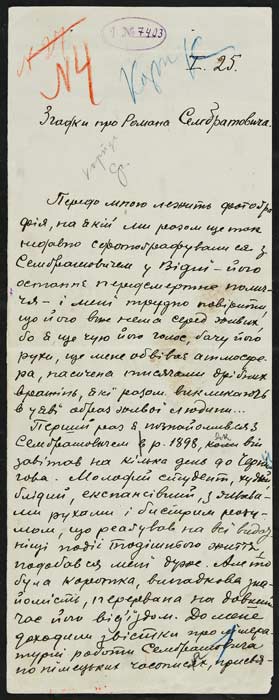 І №7403
№4
7. 25.
Згадки про Романа Сембратовича.
Передо мною лежить фотогра-
фія, на якій ми разом ще так
недавно сфотографувалися з
Сембратовичем у Відні – його
остання передсмертна
і мені трудно повірити
що його вже нема серед живих,
бо я ще чую його голос, бачу його
рухи, ще мене обвіває атмосфе-
ра, насичена тисячами дрібних
вражінь, які разом викликають
в уяві образ живої людини...
Перший раз я познайомився з
Сембратовичем в р. 1898, як він
завітав на кілька день до Черні-
гова. Молодий студент, худий
блідий, експансивний, з живи-
ми рухами і бистрим розу-
мом, що реагував на всі видат-
ніші події тодішнього життя
подобався мені дуже. Але то
була коротка, випадкова зна-
йомість, перервана на довший
час його від'їздом. До мене
доходили звістки про літера-
турні роботи Сембратовича
по німецьких часописях, присвя-